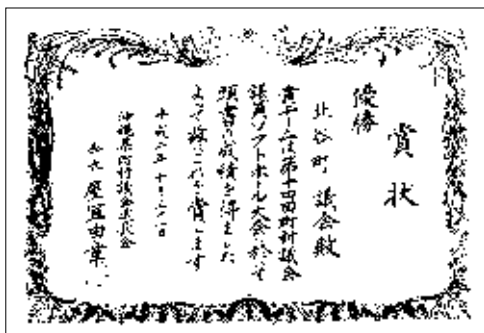 賞状
優勝
北谷町議会殿
貴チームは第十回町村議会
議員ソフトボール大会に於いて
頭書の成績を得ました
よって茲にこれを賞します
平成二年十月
沖縄県町村議会議長会
会長